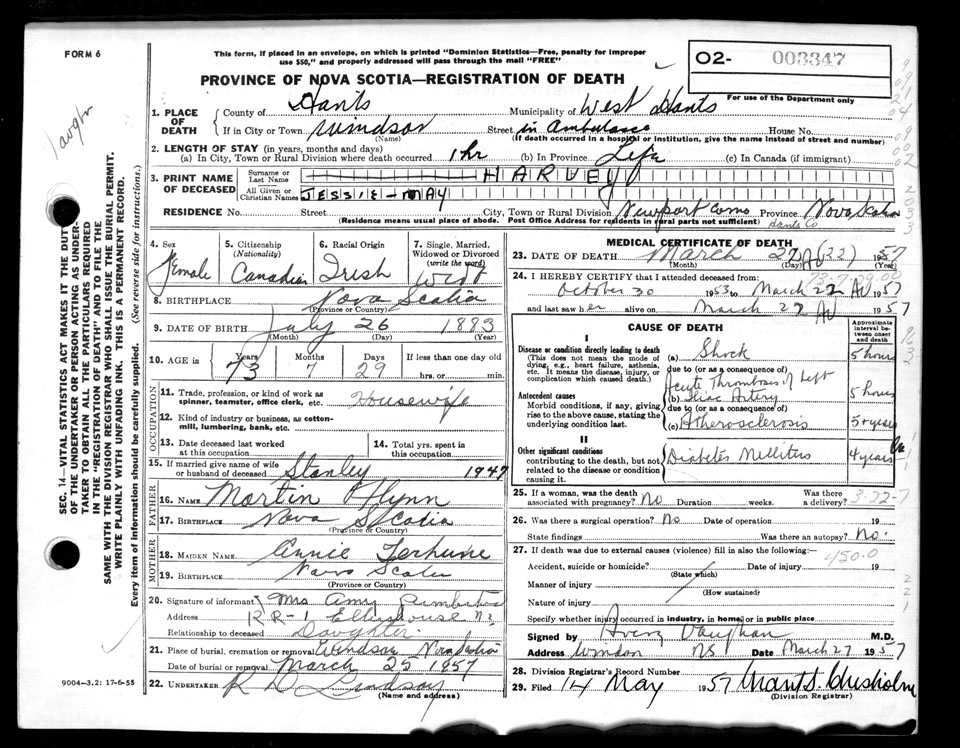 FORM 6
This form, if placed in an envelope, on which is printed "Dominion Statistics—Free, penalty for improper
use $50," and properly addressed will pass through the mail "FREE"
02- 003347
For use of the Department only
PROVINCE OF NOVA SCOTIA—REGISTRATION OF DEATH
1. PLACE OF DEATH County of Hants Municipality of West Hants
If in City or Town Windsor Street in Ambulance House No.
(Name) (If death occurred in a hospital or institution, give the name instead of street and number)
2. LENGTH OF STAY (in years, months and days)
(a) In City, Town or Rural Division where death occurred 1 hr (b) In Province Life (c) In Canada (if immigrant)
3. PRINT NAME OF DECEASED Surname or Last Name HARVEY
All Given or Christian Names JESSIE-MAY
RESIDENCE No. Street City, Town or Rural Division Newport Corner Province Nova Scotia
(Residence means usual place of abode. Post Office Address for residents in rural parts not sufficient) Hants Co
4. Sex Female
5. Citizenship (Nationality) Canadian
6. Racial Origin Irish
7. Single, Married, Widowed or Divorced (write the word) Wid
8. BIRTHPLACE Nova Scotia
(Province or Country)
9. DATE OF BIRTH July 26 1883
(Month) (Day) (Year)
10. AGE in Years 73 Months 7 Days 29 If less than one day old
hrs. or min.
OCCUPATION
11. Trade, profession, or kind of work as spinner, teamster, office clerk, etc. Housewife
12. Kind of industry or business, as cotton-mill, lumbering, bank, etc.
13. Date deceased last worked at this occupation
14. Total yrs. spent in this occupation
15. If married give name of wife or husband of deceased Stanley 1947
FATHER
16. NAME Martin Flynn
17. BIRTHPLACE Nova Scotia
(Province or Country)
MOTHER
18. MAIDEN NAME Annie Terhune
19. BIRTHPLACE Nova Scotia
(Province or Country)
20. Signature of informant Mrs Amy
Address RR-1 Ellershouse N.S.
Relationship to deceased Daughter
21. Place of burial, cremation or removal Windsor Nova Scotia
Date of burial or removal March 25 1957
22. UNDERTAKER R D Lindsay
(Name and address)
9004—3.2: 17-6-55
MEDICAL CERTIFICATE OF DEATH
23. DATE OF DEATH March 22 1957
(Month) (Day) (Year)
24. I HEREBY CERTIFY that I attended deceased from:
October 30 1953 to March 22 AV 1957
and last saw her alive on March 22 AV 1957
CAUSE OF DEATH
Approximate interval between onset and death
I
Disease or condition directly leading to death
(This does not mean the mode of dying, e.g., heart failure, asthenia, etc. It means the disease, injury, or complication which caused death.)
(a) Shock 5 hours
due to (or as a consequence of)
Antecedent causes
Morbid conditions, if any, giving rise to the above cause, stating the underlying condition last.
Acute Thrombosis of Left
(b) Iliac Artery 5 hours
due to (or as a consequence of)
(c) Atherosclerosis 5+ years
II
Other significant conditions
contributing to the death, but not related to the disease or condition causing it.
Diabetes Mellitus 4 years
25. If a woman, was the death associated with pregnancy? No Duration weeks. Was there a delivery? 3-22-7
26. Was there a surgical operation? No Date of operation 19
State findings Was there an autopsy? No.
27. If death was due to external causes (violence) fill in also the following:— 450.0
Accident, suicide or homicide? Date of injury 19
(State which)
Manner of injury
(How sustained)
Nature of injury
Specify whether injury occurred in industry, in home, or in public place
Signed by Avery Vaughan M.D.
Address Windsor NS Date March 27 1957
28. Division Registrar's Record Number
29. Filed 14 May 1957 Grant S. Chisholm
(Division Registrar)
SEC. 14—VITAL STATISTICS ACT MAKES IT THE DUTY
OF THE UNDERTAKER OR PERSON ACTING AS UNDER-
TAKER TO OBTAIN ALL THE PARTICULARS REQUIRED
IN THE "REGISTRATION OF DEATH" AND TO FILE THE
SAME WITH THE DIVISION REGISTRAR WHO SHALL ISSUE THE BURIAL PERMIT.
WRITE PLAINLY WITH UNFADING INK. THIS IS A PERMANENT RECORD.
Every item of information should be carefully supplied. (See reverse side for instructions.)